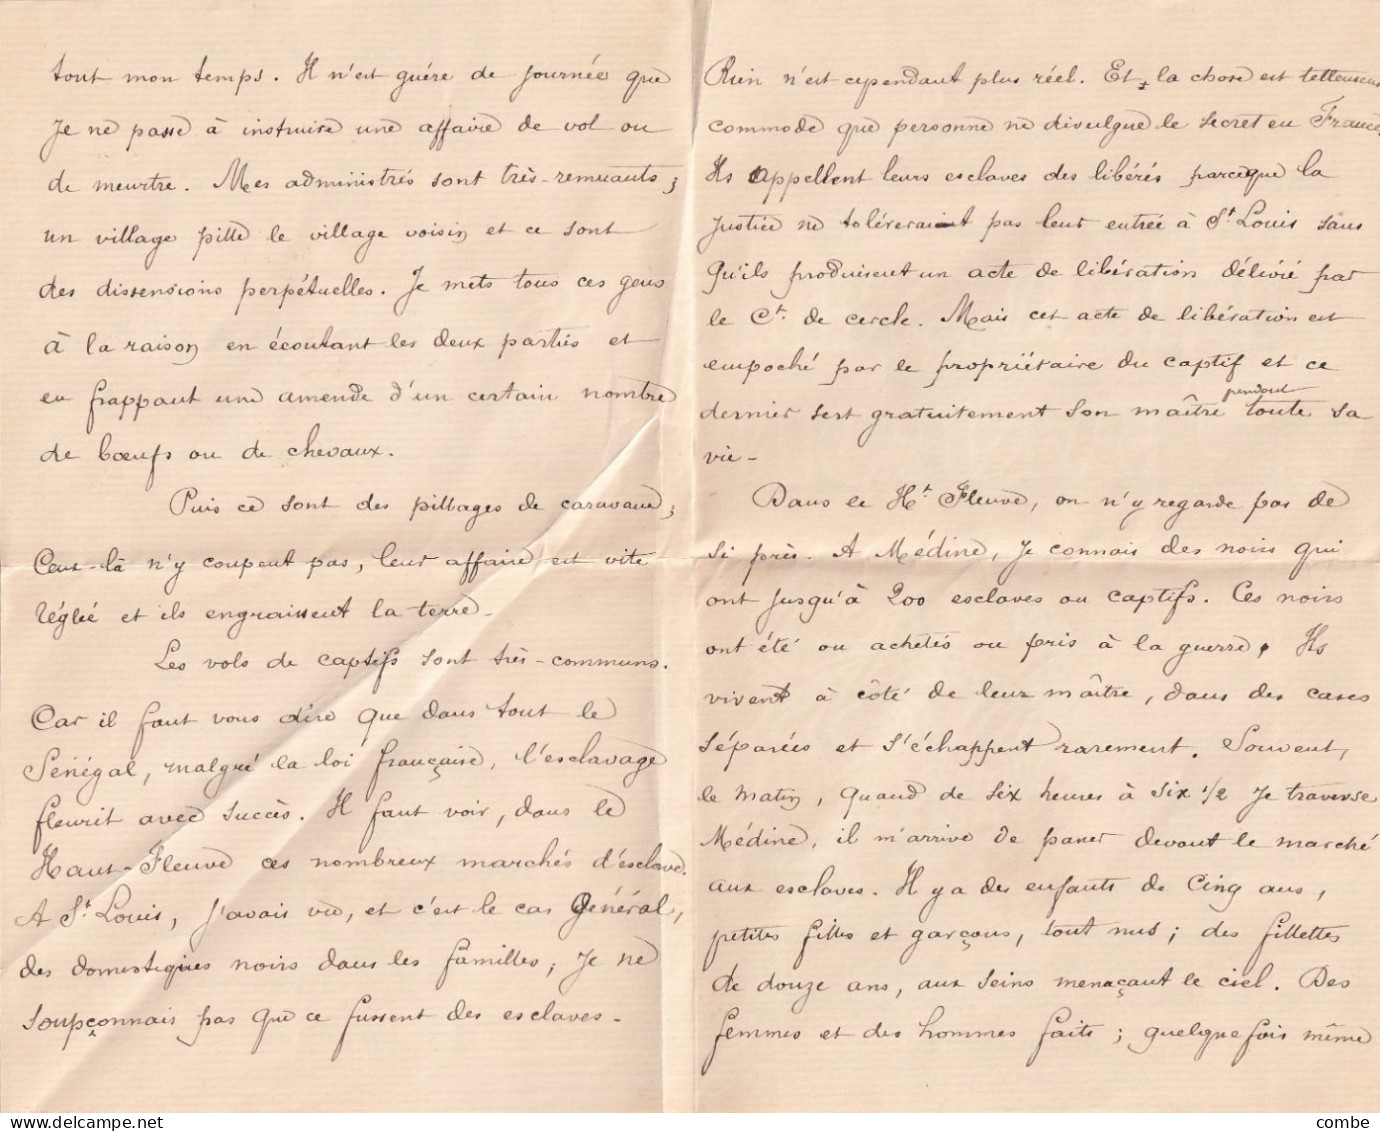 tout mon temps. Il n'est guère de journée que
je ne passe à instruire une affaire de vol ou
de meurtre. Mes administrés sont très-remuants;
un village pille le village voisin et ce sont
des dissensions perpétuelles. Je mets tous ces gens
à la raison en écoutant les deux parties et
en frappant une amende d'un certain nombre
de bœufs ou de chevaux.
Puis ce sont des pillages de caravane;
Ceux-là n'y coupent pas, leur affaire est vite
réglée et ils engraissent la terre.
Les vols de captifs sont très-communs.
Car il faut vous dire que dans tout le
Sénégal, malgré la loi française, l'esclavage
fleurit avec succès. Il faut voir, dans le
Haut-Fleuve ces nombreux marchés d'esclave.
A St. Louis, j'avais vu, et c'est le cas Général,
des domestiques noirs dans les familles; je ne
soupçonnais pas que ce fussent des esclaves.
Rien n'est cependant plus réel. Et la chose est tellement
commode que personne ne divulgue le secret en France.
Ils appellent leurs esclaves des libérés parceque la
justice ne tolérerait pas leur entrée à St. Louis sans
qu'ils produisent un acte de libération délivré par
le Ct. de cercle. Mais cet acte de libération est
empoché par le propriétaire du captif et ce
dernier sert gratuitement son maître pendant toute sa
vie -
Dans le Ht. Fleuve, on n'y regarde pas de
si près. A Médine, je connais des noirs qui
ont jusqu'à 200 esclaves ou captifs. Ces noirs
ont été ou achetés ou pris à la guerre. Ils
vivent à côté de leur maître, dans des cases
séparées et s'échappent rarement. Souvent,
le matin, quand de six heures à six 1/2 je traverse
Médine, il m'arrive de passer devant le marché
aux esclaves. Il y a des enfants de cinq ans,
petites filles et garçons, tout nus; des fillettes
de douze ans, aux seins menaçant le ciel. Des
femmes et des hommes faits; quelquefois même
combe